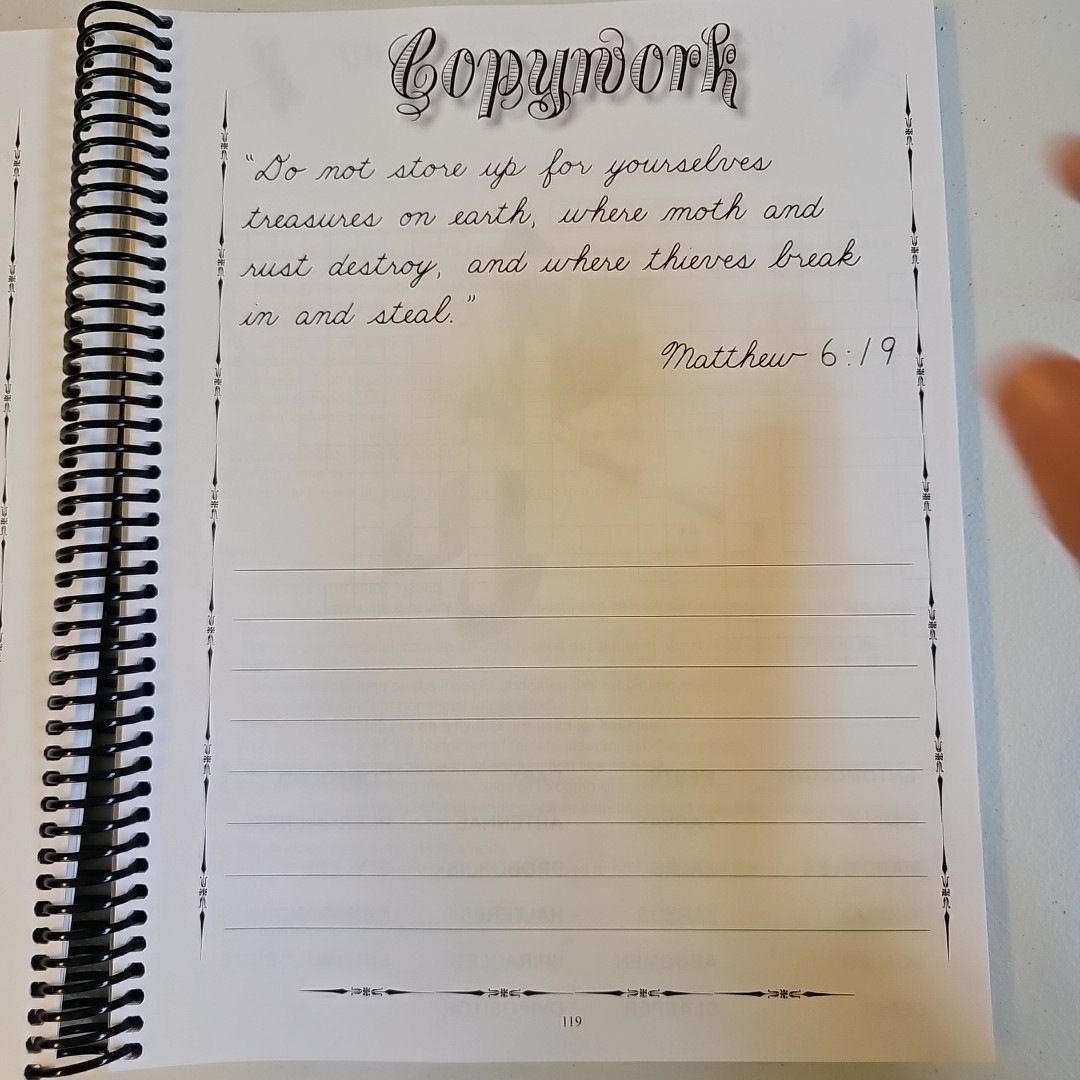 Copywork
“Do not store up for yourselves
treasures on earth, where moth and
rust destroy, and where thieves break
in and steal.”
Matthew 6:19
119